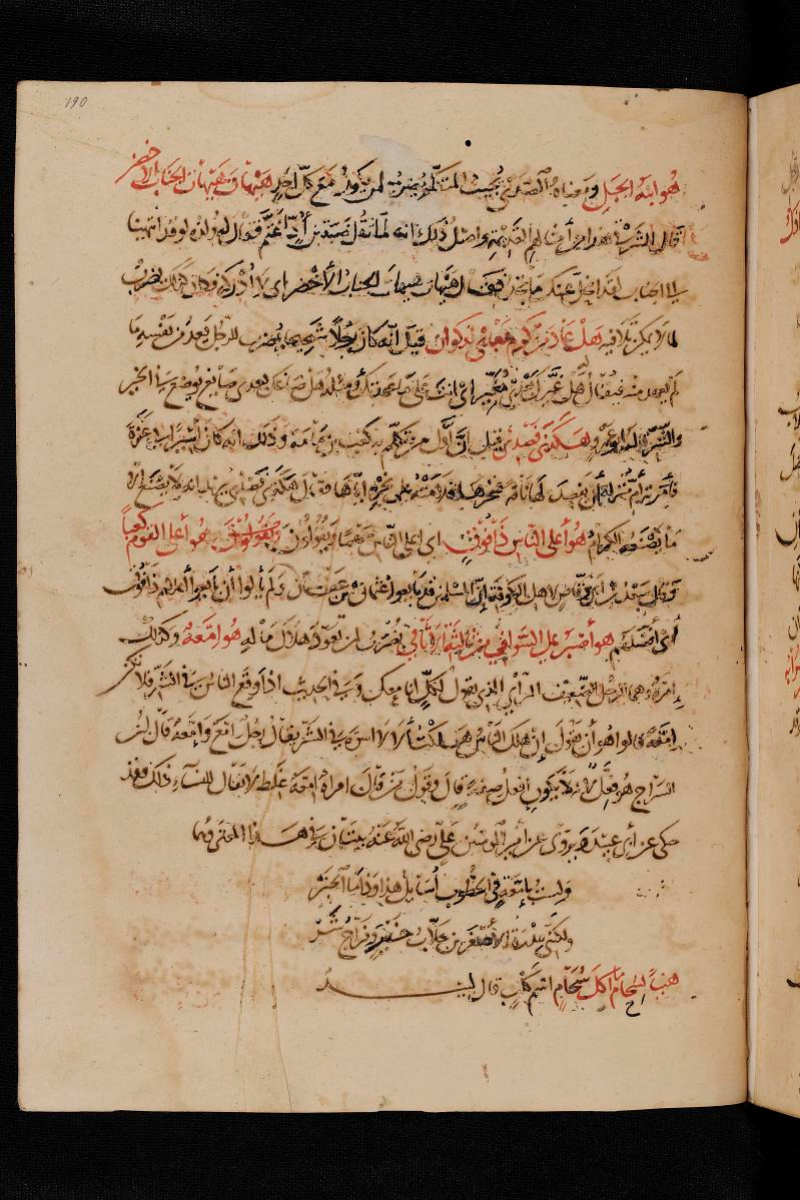 190
هو ابنة الجبل ومعناه الصدى يجيب المتكلم يضرب لمن يكون مع كل احد هيهات هيهات الجناب الاخضر
قال الشرقي هذا من أمثالهم القديمة واصل ذلك انه لما ثقل ضبة بن أد اغتم فقال له ولده لو قد انتهينا
الى الجناب لقد انحل عنك ما تجد فقال هيهات هيهات الجناب الأخضر اى لا أدركه وكان كذلك يضرب
لما لا يمكن تلافيه هل عاد من كرم بعدى قيل انه كان رجلا شحيحا يضرب للرجل يعد من نفسه ما
لم يعهد منه فيقال هل غيرك بعدى مغير اى انت على ما عهدتك ومثله
والشر هكذا فصدى قيل ان أول من تكلم به كعب بن مامة وذلك انه كان أسيرا في عنزة
فأمرته أم منزله أن يفصد لها ناقة فنحرها فلامته على نحره اياها فقال هكذا فصدى يريد انه لا يصنع الا
ما يصنعه الكرام هو أعلى الناس ذا فوق اى اعلى الناس سهما ويقولون هو أعلى القوم كعبا
وقال سعد بن ابى وقاص لاهل الكوفة إن المسلمين قد بايعوا عثمان بن عفان ولم يألوا أن بايعوا أعلاهم ذا فوق
أى أفضلهم هو أصبر على السوافي من ثالثة الأثافي يضرب لمن تعود هلاك ماله هو إمعة وكذلك
إمرة وهما الرجل الضعيف الرأي الذي يقول لكل انا معك وفي الحديث اذا وقع الناس في الشر فلا تكن
إمعة قالوا هو أن يقول إن هلك الناس هلكت ألا لا اسوة في الشر يقال رجل امع وامعة قال ابن
السراج هو فعل لأنه لا يكون إفعل صفة قال وقول من قال امرأة امعة غلط لا يقال للنساء ذلك وقد
حكى عن أبي عبيد ويروى عن أمير المؤمنين علي رضي الله عنه بيتان في هذا المعنى وهما
ولست بإمعة في الخطوب أسائل هذا وذا ما الخبر
ولكنني مدره الأصغرين جلاب خير وفراج شر
هنيئا لسحام ما اكل سحام اسم كلب قال لبيد